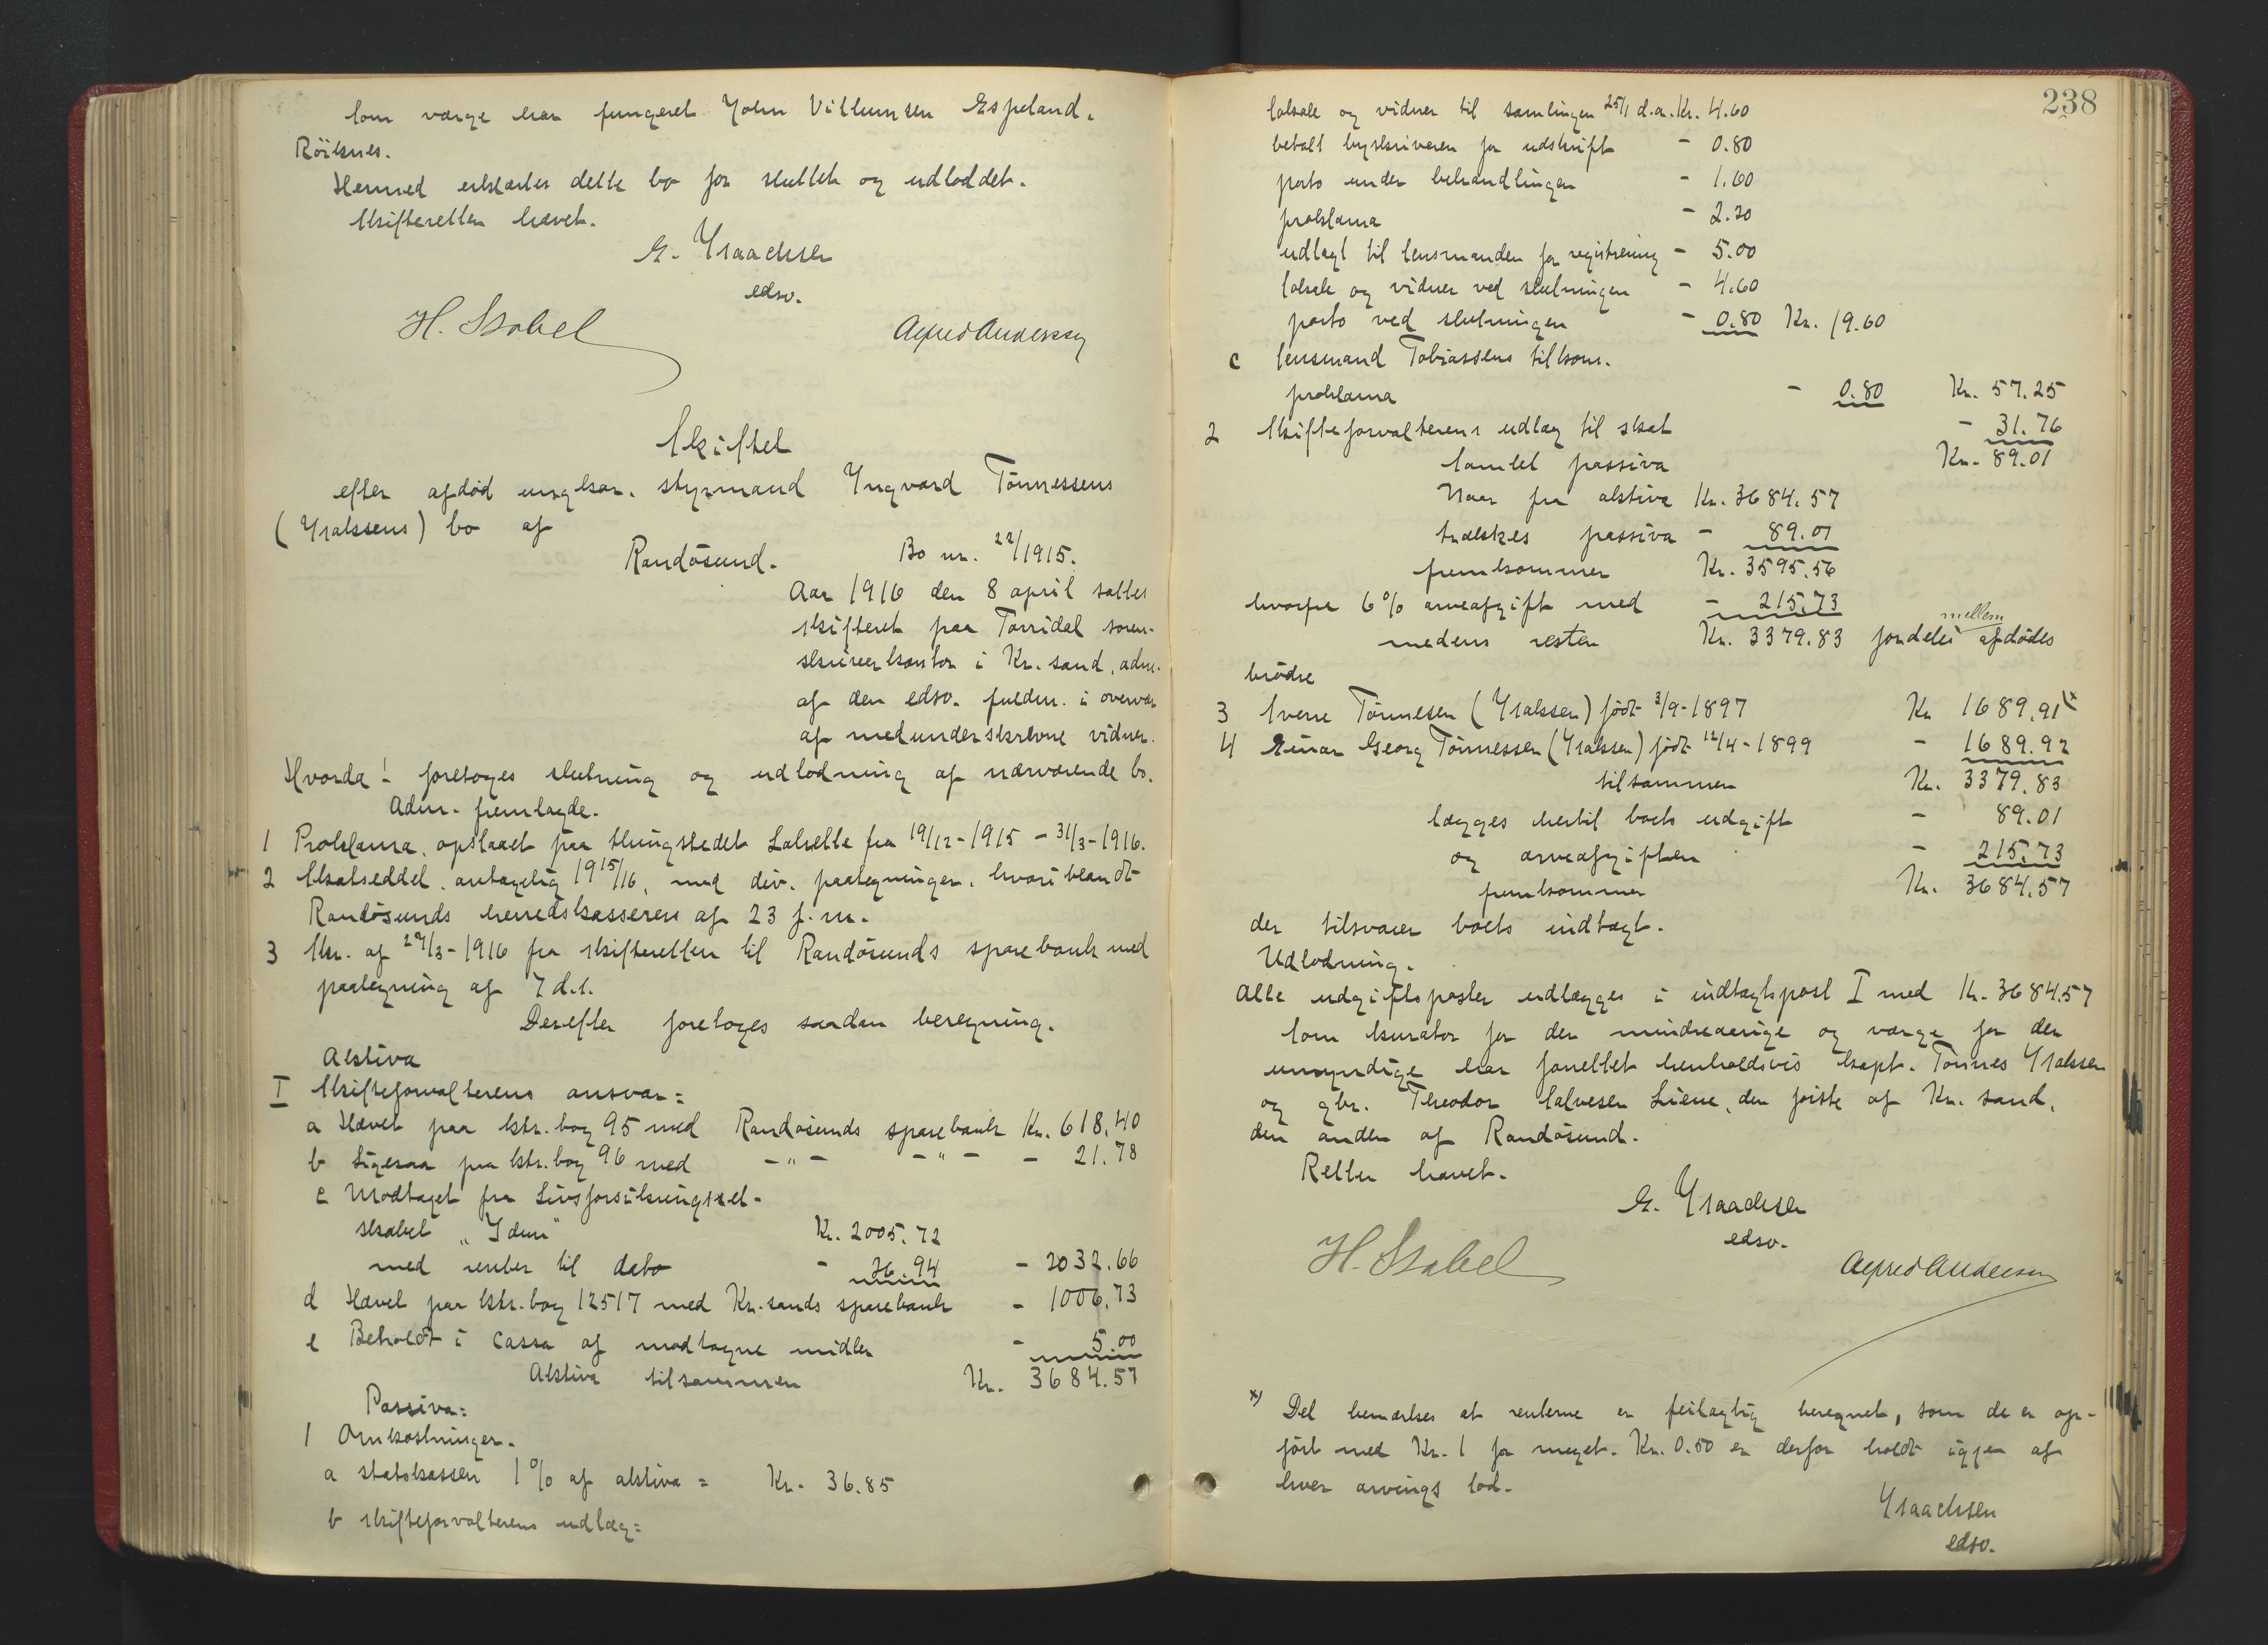 Som værge har fungeret John Villumsen Espeland,
Röiknes.
Hermed erklærtes dette bo for sluttet og udloddet.
Skifteretten hævet.
E. Ysaachsen
edsv.
H. Stabel Alfred Andersen
Skiftet
efter afdød ungkar, styrmand Yngvard Tönnessens
(Ysaksens) bo af
Randösund. Bo nr. 22/1915.
Aar 1916 den 8 april sattes
skifteret paa Torridal soren-
skriverkontor i Kr.sand, adm.
af den edsv. fuldm. i overvær
af medunderskrevne vidner.
Hvorda! foretoges slutning og udlodning af nærværende bo.
Adm. fremlagde.
1 Proklama, opslaaet paa thingstedet Salvette fra 19/12-1915 - 31/3-1916.
2 Skatseddel, antagelig 1915/16, med div. paategninger, hvoriblandt
Randösunds herredskasserers af 23 f.m.
3 Skr. af 27/3-1916 fra skifteretten til Randösunds sparebank med
paategning af 7 d.s.
Derefter foretoges saadan beregning.
Aktiva
I Skifteforvalterens ansvar:
a Hævet paa ktr.bog 95 med Randösunds sparebank Kr. 618,40
b Ligesaa paa ktr.bog 96 med -"- -"- - 21.78
c Modtaget fra Livsforsikringssel-
skabet "Idun" Kr. 2005.72
med renter til dato - 26.94 - 2032.66
d Hævet paa ktr.bog 12517 med Kr.sands sparebank - 1006,73
e Beholdt i cassa af modtagne midler - 5.00
Aktiva tilsammen Kr. 3684.57
Passiva:
1 Omkostninger.
a statskassen 1% af aktiva = Kr. 36.85
b skifteforvalterens udlæg:
238
lokale og vidner til samlingen 25/1 d.a. Kr. 4.60
betalt byskriveren for udskrift - 0.80
porto under behandlingen - 1.60
proklama - 2.20
udlagt til lensmanden for registrering - 5.00
lokale og vidner ved slutningen - 4.60
porto ved slutningen - 0.80 Kr. 19.60
c lensmand Tobiassens tilkom.
proklama - 0.80 Kr. 57.25
2 Skifteforvalterens udlæg til skat - 31.76
Samlet passiva Kr. 89.01
Naar fra aktiva Kr. 3684.57
trækkes passiva - 89.01
fremkommer Kr. 3595.56
hvorfra 6% arveafgift med - 215,73
medens resten Kr. 3379.83 fordeles mellem afdødes
brödre
3 Sverre Tönnesen (Ysaksen) födt 3/9-1897 Kr 1689.91 x)
4 Einar Georg Tönnessen (Ysaksen) födt 12/4-1899 - 1689.92
tilsammen Kr. 3379.83
lægges hertil boets udgift - 89.01
og arveafgiften - 215,73
fremkommer Kr. 3684,57
der tilsvarer boets indtægt.
Udlodning.
Alle udgiftsposter udlægges i indtægtspost I med Kr. 3684,57
Som kurator for den mindreaarige og værge for den
umyndige har forrettet henholdsvis kapt. Tönnes Ysaksen
og gbr. Theodor Salvesen Liene, den förste af Kr. sand,
den anden af Randösund.
Retten hævet.
E. Ysaachsen
edsv.
H. Stabel Alfred Andersen
x) Det bemærkes at renterne er feilagtig beregnet, som de er op-
fört med Kr. 1 for meget. Kr. 0.50 er derfor holdt igjen af
hver arvings lod.
Ysaachsen
edsv.